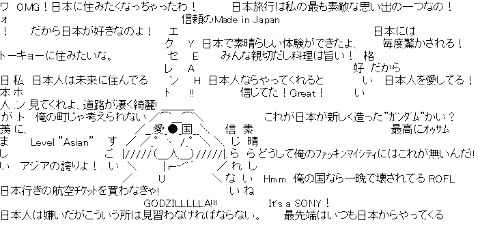 ワ OMG！日本に住みたくなっちゃったわ！ 日本旅行は私の最も素敵な思い出の一つなの！
ォ 信頼のMade in Japan
！ だから日本が好きなのよ！ エ 日本には
ク Y 日本で素晴らしい体験ができたよ、 毎度驚かされる！
トーキョーに住みたいな。 レ E みんな親切だし料理は旨い！ 格
レ A 好 だから
日 私 日本人は未来に住んでる ン H 日本人ならやってくれると い 日本人を愛してる！
本 ホ ト !! 信じてた！Great！ い
人 ン 見てくれよ、道路が凄く綺麗!
が ト 俺の町じゃ考えられない これが日本が新しく造った"ガンダム"かい？
羨 に 愛●国 信 素 最高にオゥサム
ま Level "Asian" す じ 晴
し ご |/////（__人__）/////| ら ら どうして俺のファッキンマイシティにはこれが無いんだ!!
い アジアの誇りよ！ い れ し
な い Hmm.. 俺の国なら一晩で壊されてる ROFL
日本行きの航空チケットを買わなきゃ! い ね
GODZILLLLLA!!! It's a SONY！
日本人は嫌いだがこういう所は見習わなければならない。 最先端はいつも日本からやってくる